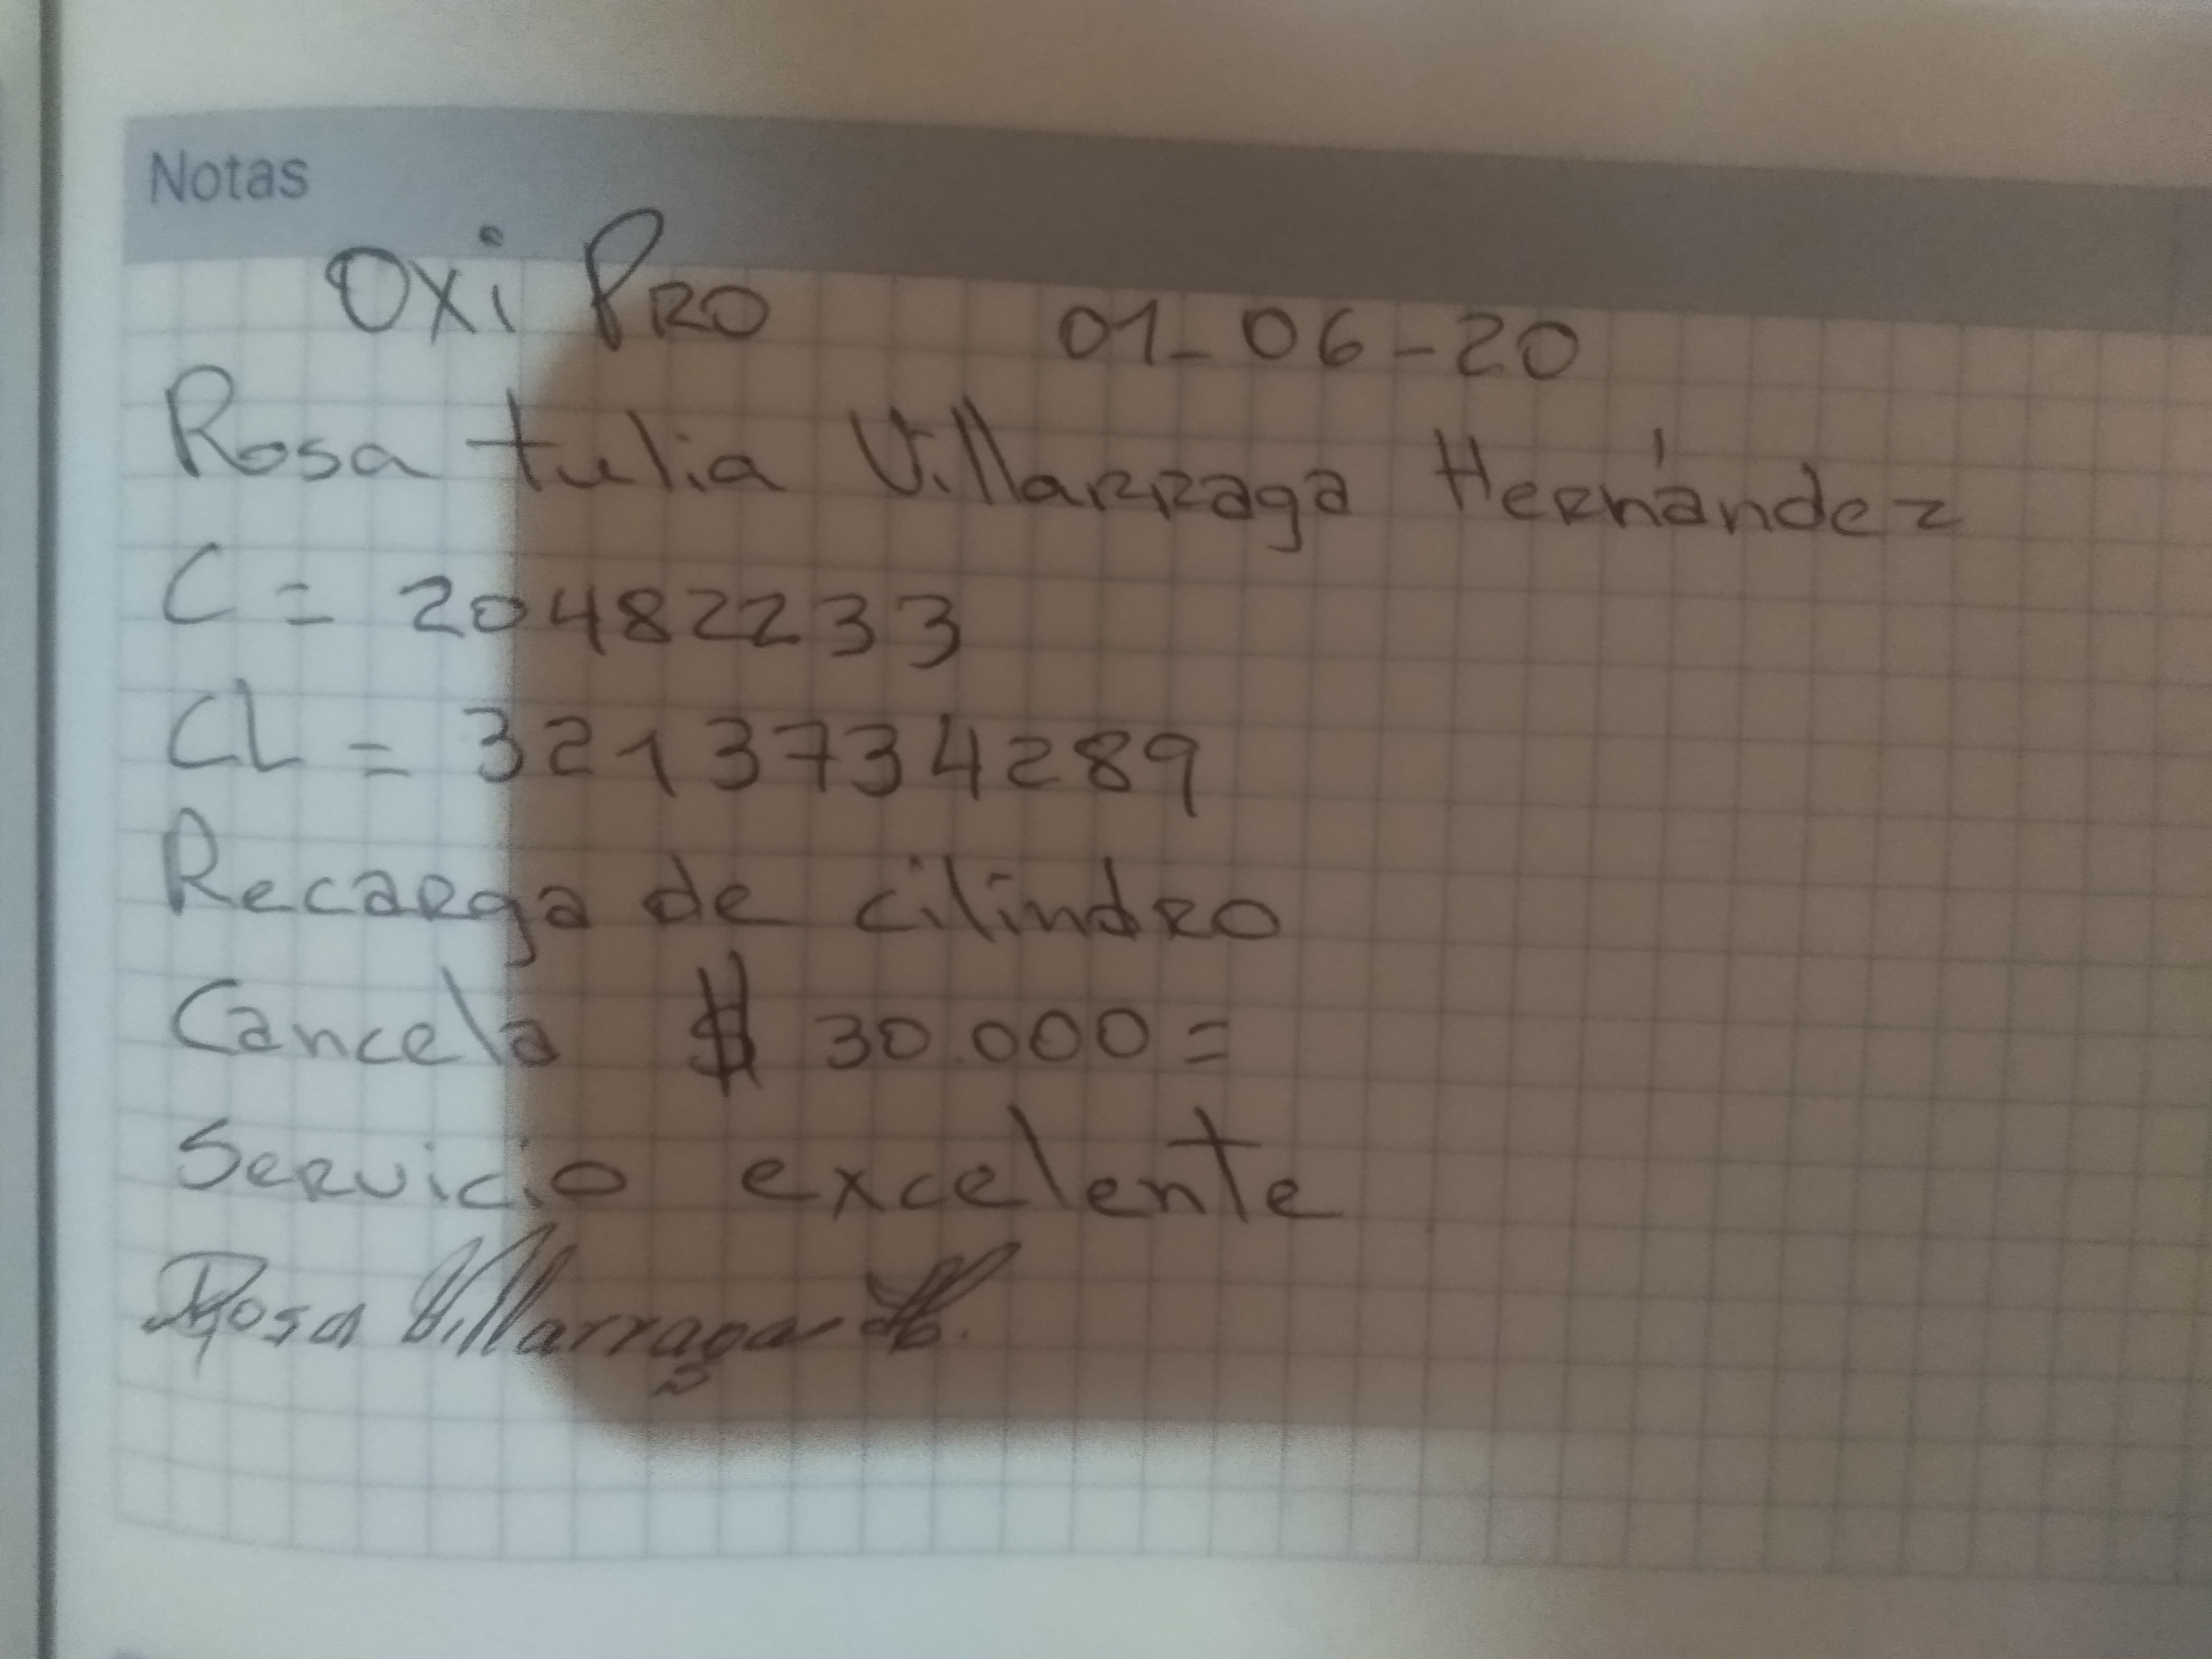 Notas
Oxi Pro 01-06-20
Rosa tulia Villarraga Hernández
C = 20482233
CL = 3213734289
Recarga de cilindro
Cancela $ 30.000=
Servicio excelente
Rosa Villarraga H.